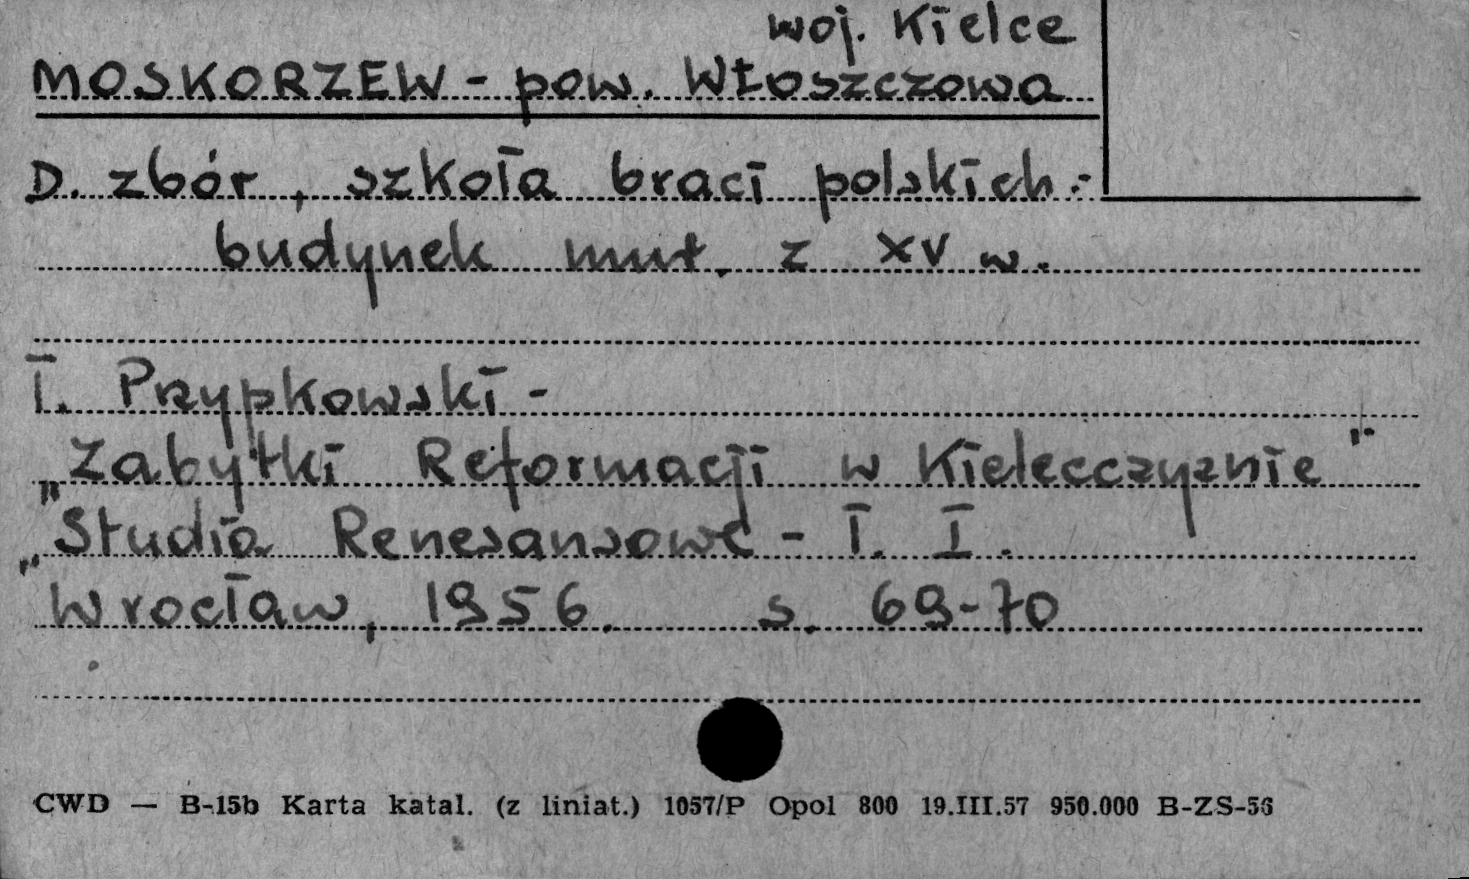 woj. Kielce
MOSKORZEW - pow. Włoszczowa
D. zbór, szkoła braci polskich :-
budynek mur. z XV w.
T. Przypkowski -
"Zabytki Reformacji w Kielecczyznie"
"Studia Renesansowe" - T. I.
Wrocław, 1956. s. 69-70
CWD — B-15b Karta katal. (z liniat.) 1057/P Opol 800 19.III.57 950.000 B-ZS-56